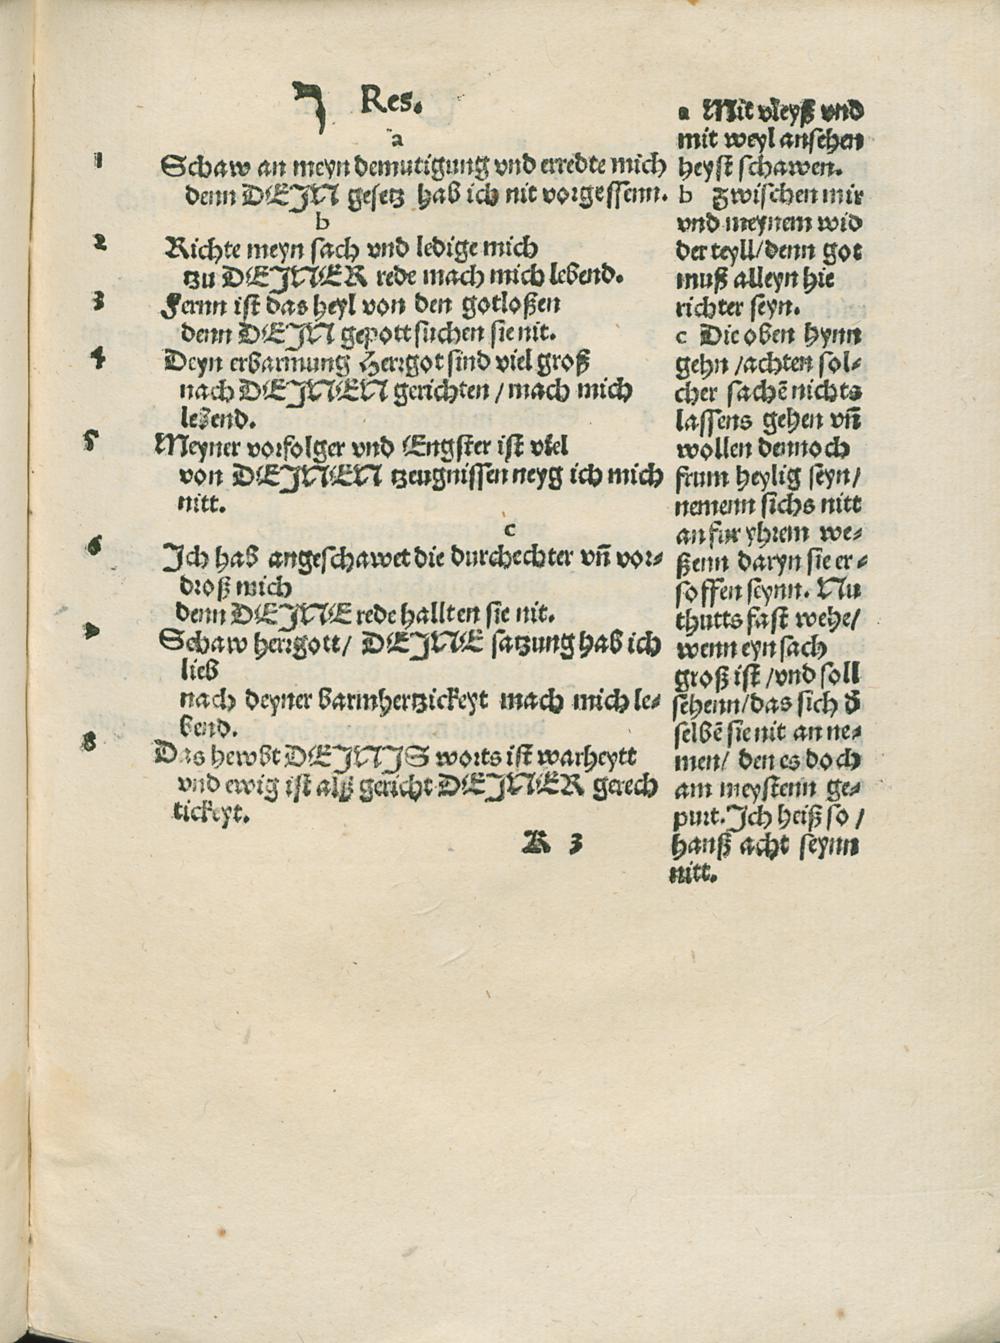 ך Res.
a
1 Schaw an meyn demutigung vnd erredte mich
denn DEJN gesetz hab ich nit vorgessenn.
b
2 Richte meyn sach vnd ledige mich
tzu DEJNER rede mach mich lebend.
3 Fernn ist das heyl von den gotloßen
denn DEJN gepott suchen sie nit.
4 Deyn erbarmung Herrgot sind viel groß
nach DEJNEN gerichten / mach mich
lebend.
5 Meyner vorfolger vnd Engster ist viel
von DEJNEN tzeugnissen neyg ich mich
nitt.
c
6 Jch hab angeschawet die durchechter vn̄ vor⸗
droß mich
denn DEJNE rede hallten sie nit.
7 Schaw herrgott/ DEJNE satzung hab ich
lieb
nach deyner barmhertzickeyt mach mich le⸗
bend.
8 Das hewbt DEJNJS worts ist warheytt
vnd ewig ist alß gericht DEJNER gerech
tickeyt.
K 3
a Mit vleyß vnd
mit weyl ansehen
heyst schawen.
b zwischen mir
vnd meynem wid
der teyll/denn got
muß alleyn hie
richter seyn.
c Die oben hynn
gehn /achten sol⸗
cher sachē nichts
lassens gehen vn̄
wollen dennoch
frum heylig seyn/
nemenn sichs nitt
an fur yhrem we⸗
ßenn daryn sie er⸗
soffen seynn. Nu
thutts fast wehe/
wenn eyn sach
groß ist /vnd soll
sehenn/das sich d̄
selbē sie nit an ne⸗
men/ den es doch
am meystenn ge⸗
purt. Jch heiß so /
hanß acht seynn
nitt.